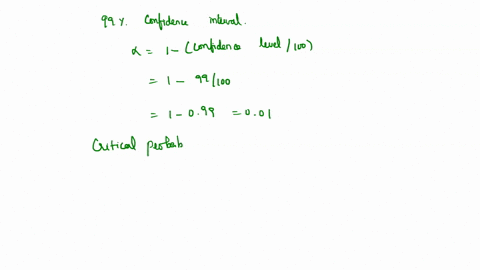 99 %. Confidence interval.
α = 1 - (Confidence level / 100)
= 1 - 99/100
= 1 - 0.99 = 0.01
Critical probab